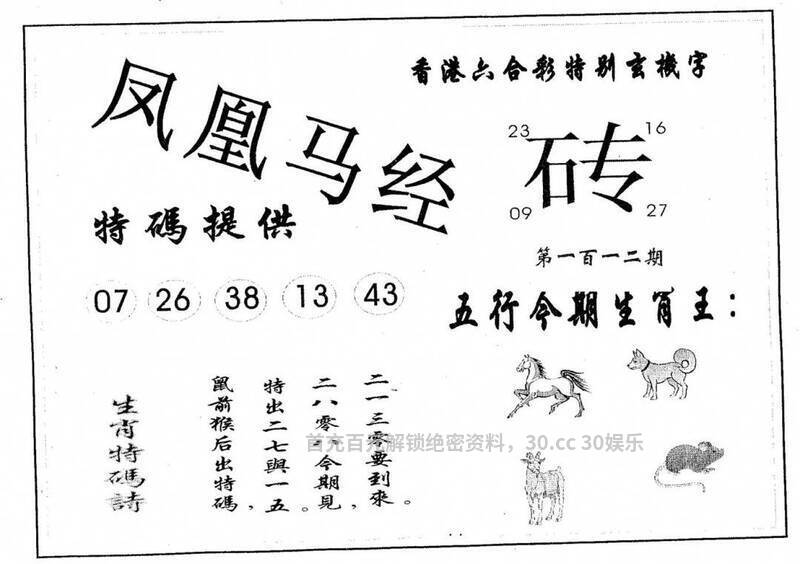 凤凰马经
香港六合彩特别玄機字
23 16
砖
09 27
特碼提供
第一百一二期
07 26 38 13 43
五行今期生肖王：
生肖特碼詩
鼠前猴后出特碼，
特出二七與一五。
二八零六今期見，
二一三零要到來。
首充百分解锁绝密资料，30.cc 30娱乐